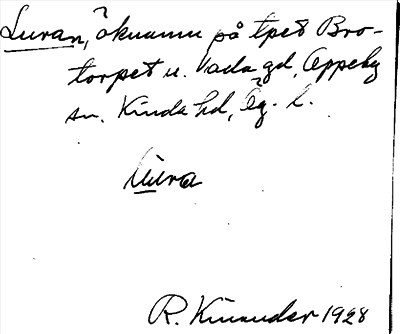 Luran, åknamn på tpet Bro-
torpet u. Vada gd, Oppeby
sn. Kinda hd, Ög. l.
Lura
R. Kinander 1928